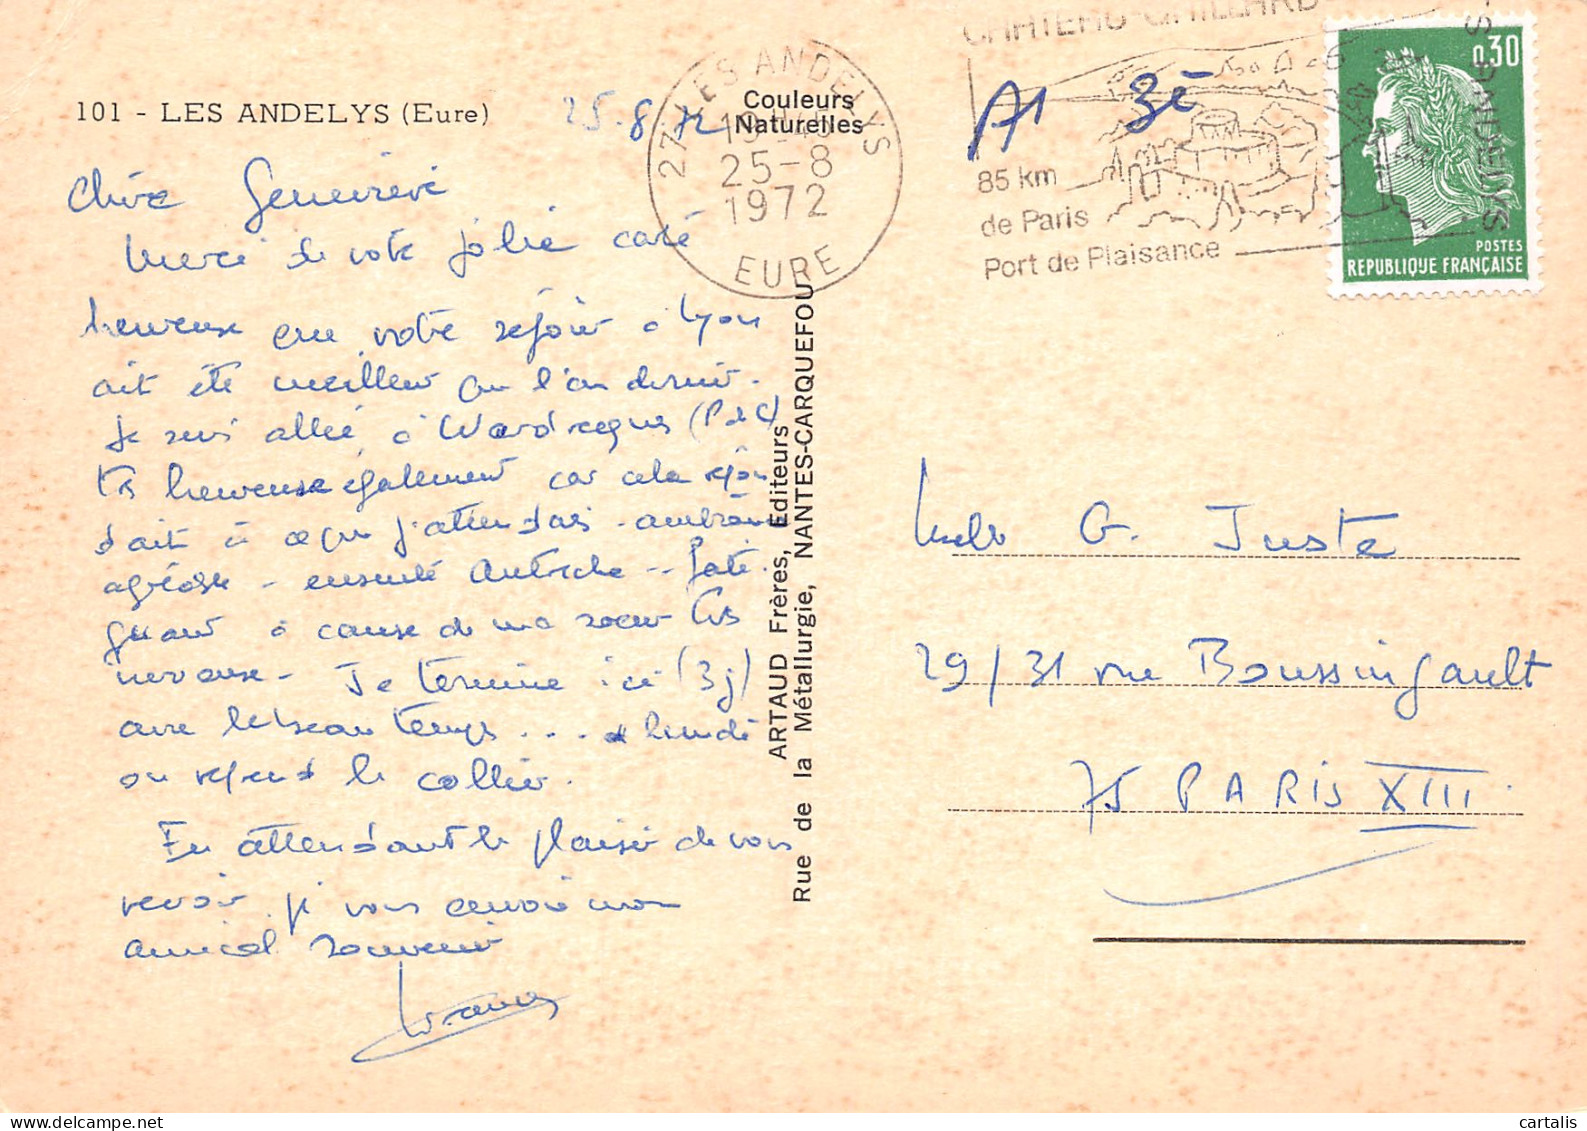 101 - LES ANDELYS (Eure)
25.8.72
Couleurs
Naturelles
27 LES ANDELYS
25-8
1972
EURE
CHATEAU-GAILLARD
85 km
de Paris
Port de Plaisance
A1 3è
0,30
POSTES
REPUBLIQUE FRANÇAISE
Chère Geneviève
Merci de votre jolie carte
heureuse que votre séjour à Lyon
ait été meilleur que l'an dernier.
Je suis allée à Wardrecques (P de C)
très heureuse également car cela répon
dait à ce que j'attendais - ambiance
agréable - ensuite Autriche -- gâté
quand à cause de ma soeur très
nerveuse - Je termine ici (3j)
avec le beau temps ... lundi
on reprend le collier.
En attendant le plaisir de vous
revoir je vous envoie mon
amical souvenir
ARTAUD Frères, Editeurs
Rue de la Métallurgie, NANTES-CARQUEFOU
Melle G. Juste
29/31 rue Boussingault
75 PARIS XIII